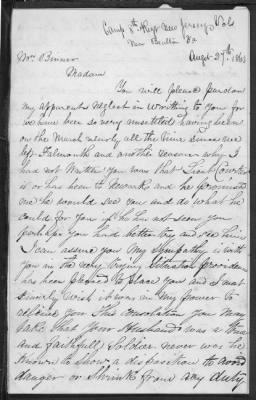 Camp 8th Regt New Jersey Vols
Near Bealton Va
Augt. 27th 1863
Mrs. Benner
Madam
You will please pardon
my apparent neglect in writting to you for
we have been so very unsettled having been
on the March nearly all the time since we
left Falmouth and another reason why I
had not written you was that Lieut
is or has been to Newark and he promised
me he would see you and do what he
could for you if he has not seen you
perhaps you had better try and see him
I can assure you my sympathy is with
you in the very trying situation providence
has been pleased to place you and I most
sincerely wish it was in my power to
relieve you This consolation you may
take that your Husband was a true
and faithfull Soldier never was he
known to show a disposition to avoid
danger or shrink from any duty